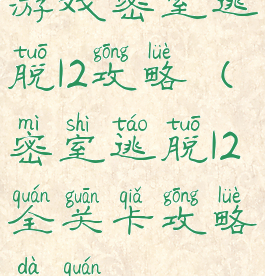 游戏密室逃
tuō gōng lüè
脱12攻略（
mì shì táo tuō
密室逃脱12
quán guān qiǎ gōng lüè
全关卡攻略
dà quán